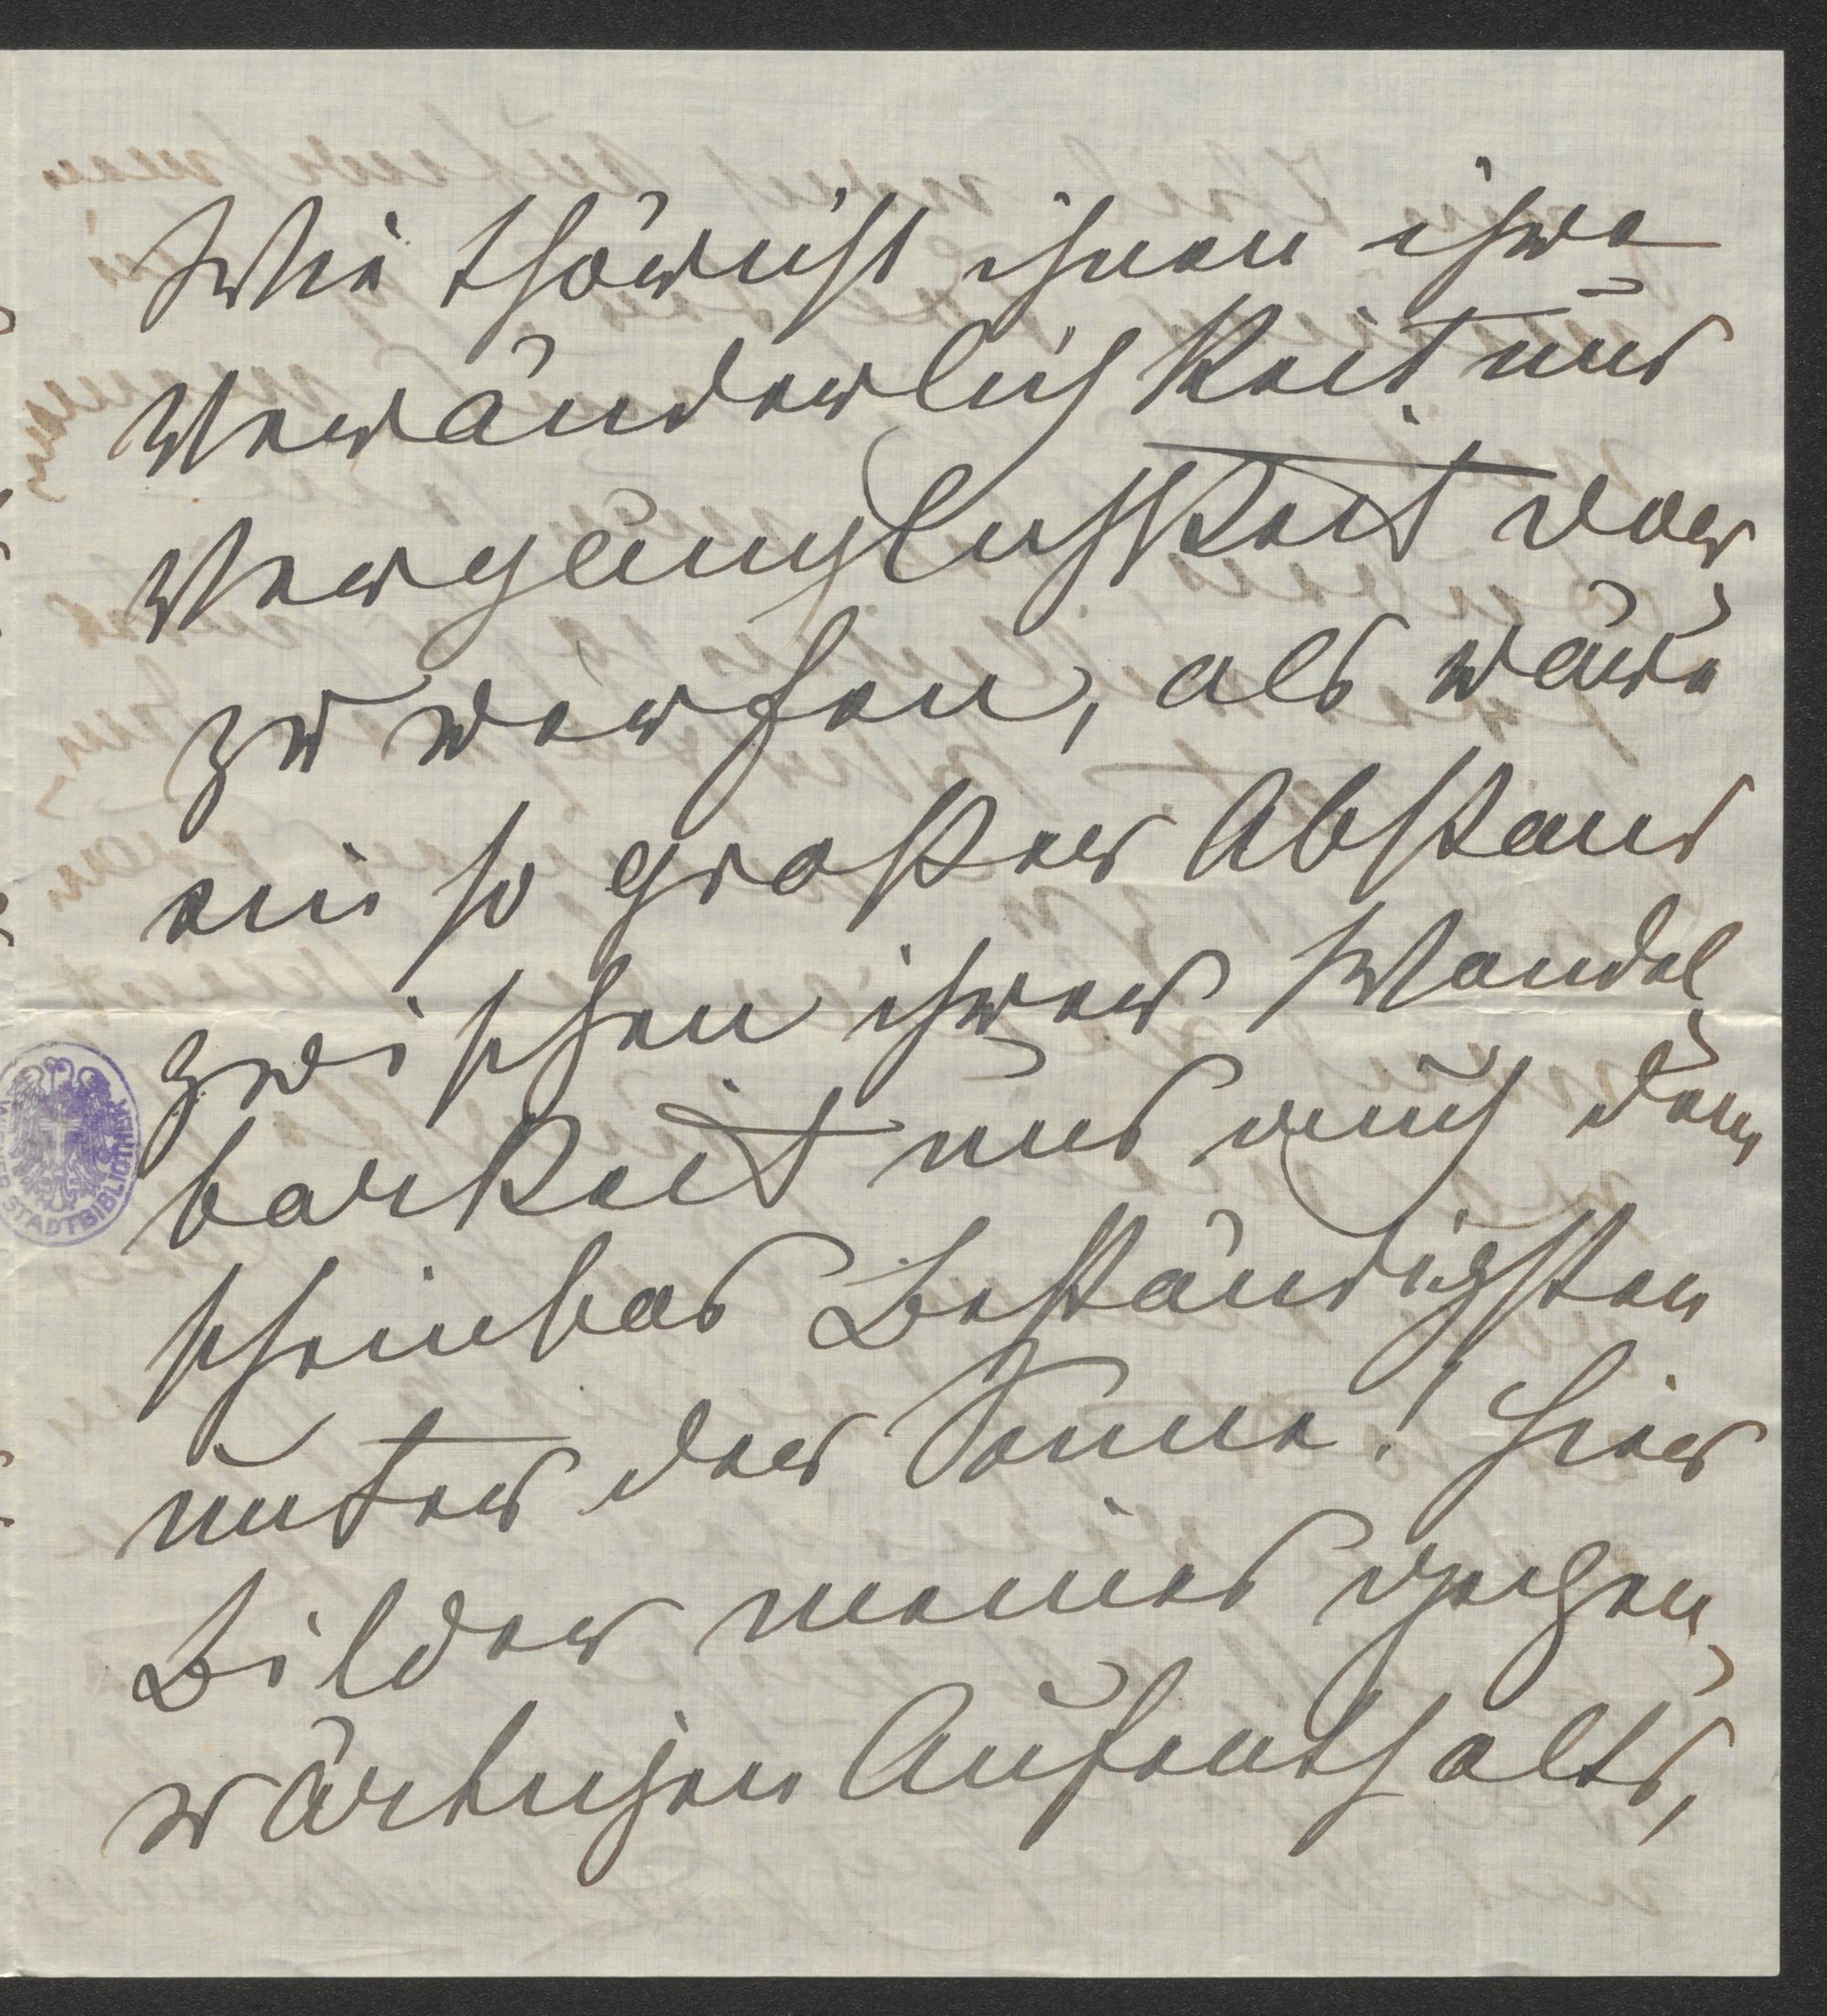 Wie thöricht ihnen ihre
Veränderlichkeit und
Vergänglichkeit vor
zu werfen, als wäre
ein so großer Abstand
zwischen ihrer Wandel
barkeit und auch dem
scheinbar Beständigsten
unter der Sonne! Hier
Bilder meines gegen
wärtigen Aufenthalts,
STADTBIBLIOTHEK